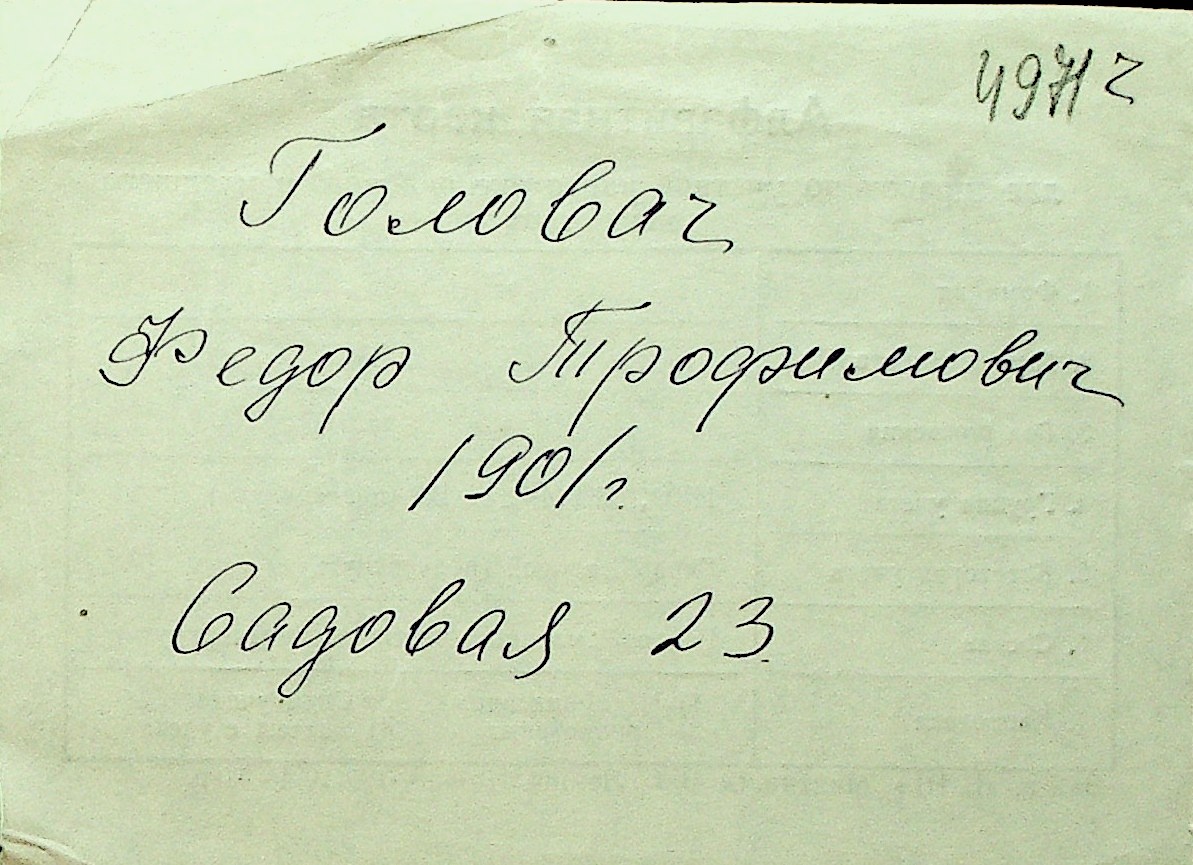 4971г
Головач
Федор Трофимович
1901г.
Садовая 23.